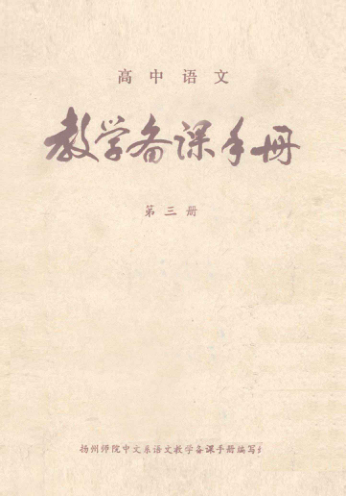 高中语文
教学备课手册
第三册
扬州师院中文系语文教学备课手册编写